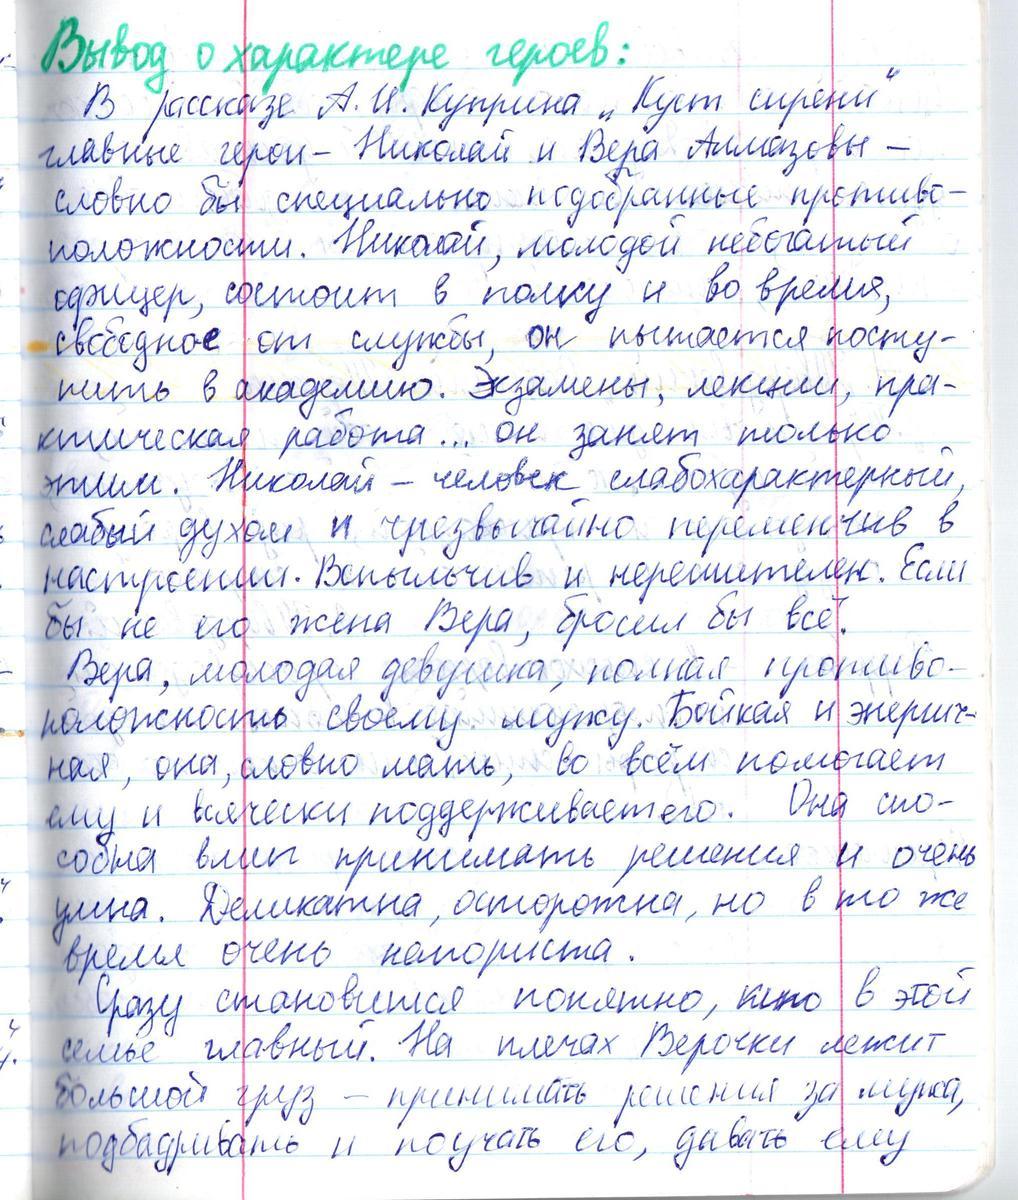 Вывод о характере героев:
В рассказе А. И. Куприна „Куст сирени“
главные герои – Николай и Вера Алмазовы –
словно бы специально подобранные противо-
положности. Николай, молодой небогатый
офицер, состоит в полку и во время,
свободное от службы, он пытается посту-
пить в академию. Экзамены, лекции, пра-
ктическая работа... он занят только
этим. Николай – человек слабохарактерный,
слабый духом и чрезвычайно переменчив в
настроении. Вспыльчив и нерешителен. Если
бы не его жена Вера, бросил бы всё.
Вера, молодая девушка, полная противо-
положность своему мужу. Бойкая и энергич-
ная, она, словно мать, во всём помогает
ему и всячески поддерживает его. Она спо-
собна вмиг принимать решения и очень
умна. Деликатна, осторожна, но в то же
время очень напориста.
Сразу становится понятно, кто в этой
семье главный. На плечах Верочки лежит
большой груз – принимать решения за мужа,
подбадривать и поучать его, давать ему